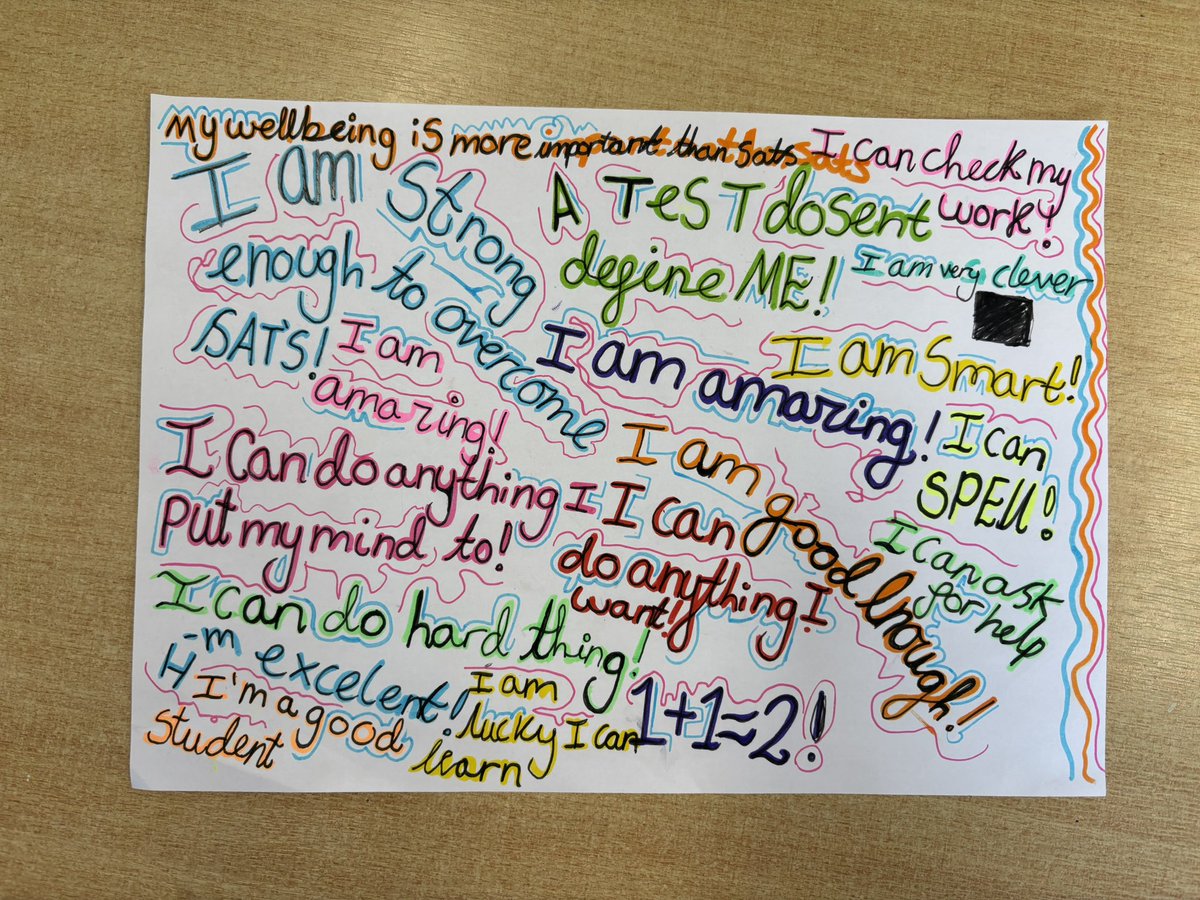 my wellbeing is more important than Sats
I can check my
work!
I am Strong
enough to overcome
SATS!
A TeST dosent
define ME!
I am very clever
I am
amazing!
I am amazing!
I am Smart!
I can
SPEll!
I Can do anything I
Put my mind to!
I am good Enough!
I can
do anything I
want!
I can ask
for help
I can do hard thing!
excelent!
I'm a good
student
I am
lucky I can
learn
1+1=2!